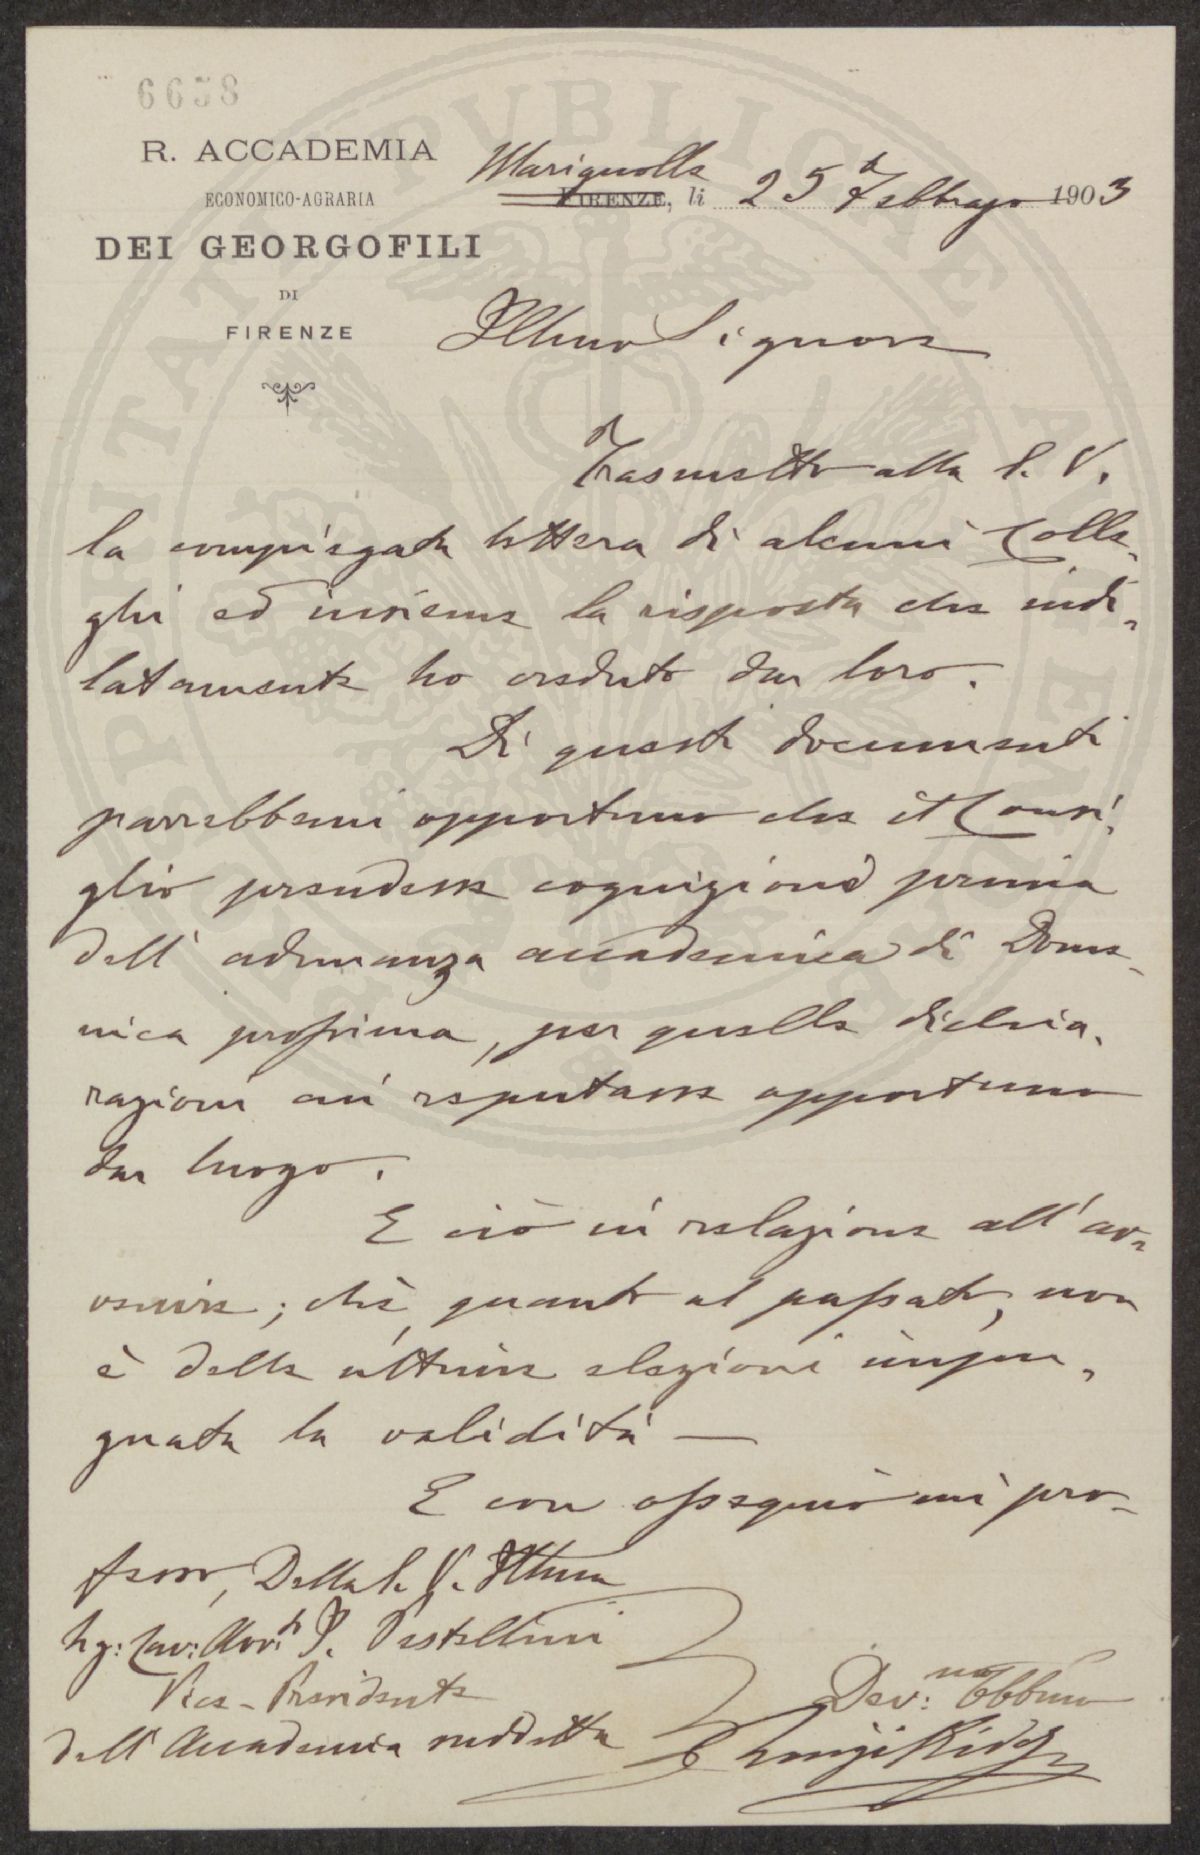 6658
R. ACCADEMIA
ECONOMICO-AGRARIA
DEI GEORGOFILI
DI
FIRENZE
Marignolle
FIRENZE, li 25 Febbrajo 1903
Illmo Signore
Trasmetto alla S. V.
la compiegata lettera di alcuni Colle-
ghi ed insieme la risposta che indi-
latamente ho creduto dar loro.
Di questi documenti
parrebbemi opportuno che il Consi-
glio prendesse cognizione prima
dell' adunanza accademica di Dome-
nica prossima, per quelle dichia-
razioni cui reputasse opportuno
dar luogo.
E ciò in relazione all' av-
venire; chè, quanto al passato, non
è delle ultime elezioni impu-
gnata la validità —
E con ossequio mi pro-
fesso, Della S. V. Illma
Sig: Cav: Avv. P. Pestellini
Vice-Presidente
dell' Accademia suddetta
Dev: mo Obbmo
Luigi Ridolfi
PUBLICAE
PROSPERITATI
AUGENDAE